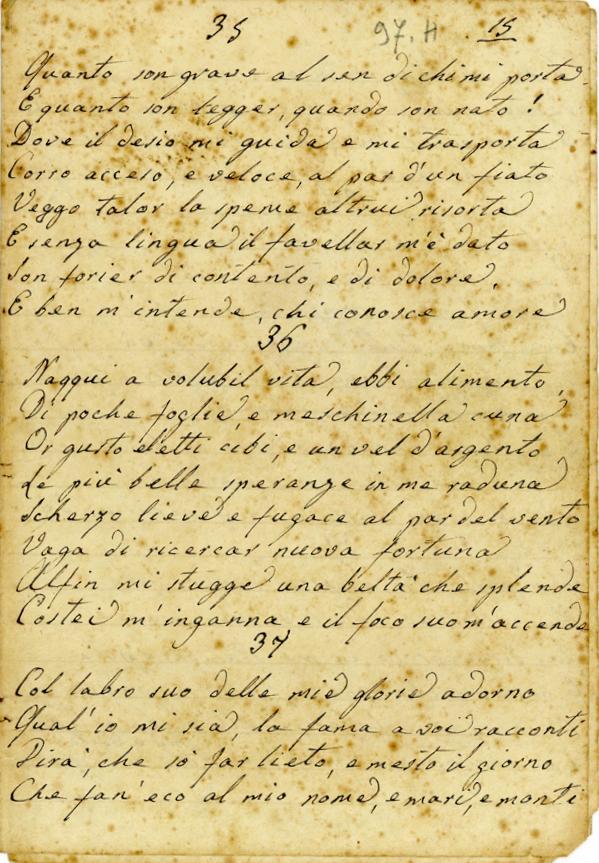 35 97. H 15
Quanto son grave al sen di chi mi porta
E quanto son legger, quando son nato!
Dove il desio mi guida e mi trasporta
Corro acceso, e veloce, al par d'un fiato
Veggo talor la speme altrui risorta
E senza lingua il favellar m'è dato
Son forier di contento, e di dolore,
E ben m'intende, chi conosce amore
36
Nacqui a volubil vita, ebbi alimento,
Di poche foglie, e meschinella cuna
Or gusto eletti cibi, e un vel d'argento
Le più belle speranze in me raduna
Scherzo lieve e fugace al par del vento
Vaga di ricercar nuova fortuna
Alfin mi stugge una beltà che splende
Costei m'inganna e il foco suo m'accende
37
Col labro suo delle mie glorie adorno
Qual'io mi sia, la fama a voi racconti
Dirà, che sò far lieto, e mesto il giorno
Che fan'eco al mio nome, e mari, e monti